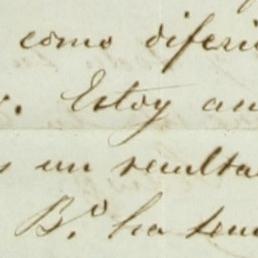 como diferi
. Estoy an
s un resulta
B.º ha tenu